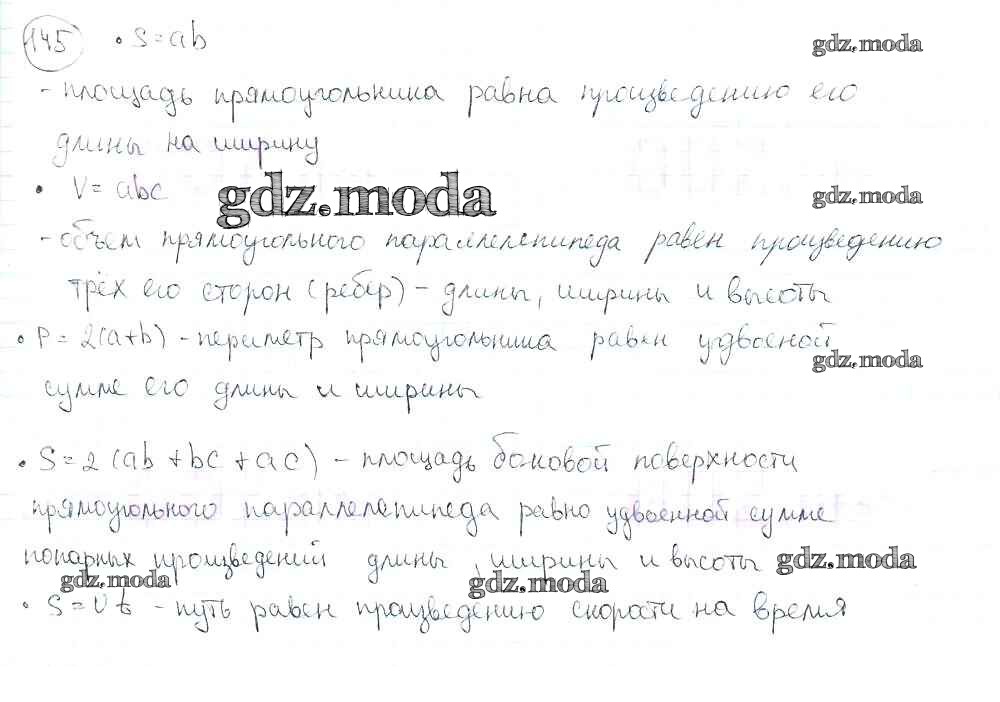 145 • S=ab
gdz.moda
- площадь прямоугольника равна произведению его
длины на ширину
• V= abc
gdz.moda
gdz.moda
- объем прямоугольного параллелепипеда равен произведению
трёх его сторон (ребер) - длины, ширины и высоты
• P= 2(a+b) - периметр прямоугольника равен удвоеной
gdz.moda
сумме его длины и ширины
• S=2 (ab+bc+ac) - площадь боковой поверхности
прямоугольного параллелепипеда равно удвоенной сумме
попарных произведений длины, ширины и высоты
gdz.moda
gdz.moda
gdz.moda
• S=Vt - путь равен произведению скорости на время